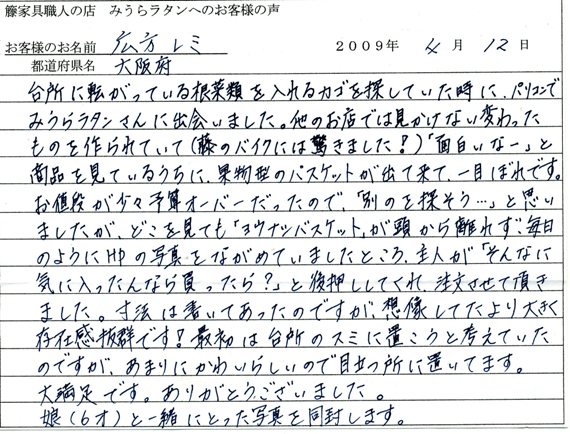 籐家具職人の店 みうらラタンへのお客様の声
お客様のお名前 広方 レミ 2009年 4月 12日
都道府県名 大阪府
台所に転がっている根菜類を入れるカゴを探していた時に、パソコンで
みうらラタンさんに出会いました。他のお店では見かけない変わった
ものを作られていて(藤のバイクには驚きました！)「面白いなー」と
商品を見ているうちに、果物型のバスケットが出て来て、一目ぼれです。
お値段が少々予算オーバーだったので、「別のを探そう…」と思い
ましたが、どこを見ても「ヨウナシバスケット」が頭から離れず、毎日
のようにHPの写真をながめていましたところ、主人が「そんなに
気に入ったんなら買ったら？」と後押ししてくれ、注文させて頂き
ました。寸法は書いてあったのですが、想像してたより大きく
存在感抜群です！最初は台所のスミに置こうと考えていた
のですが、あまりにかわいらしいので目立つ所に置いてます。
大満足です。ありがとうございました。
娘(6才)と一緒にとった写真を同封します。